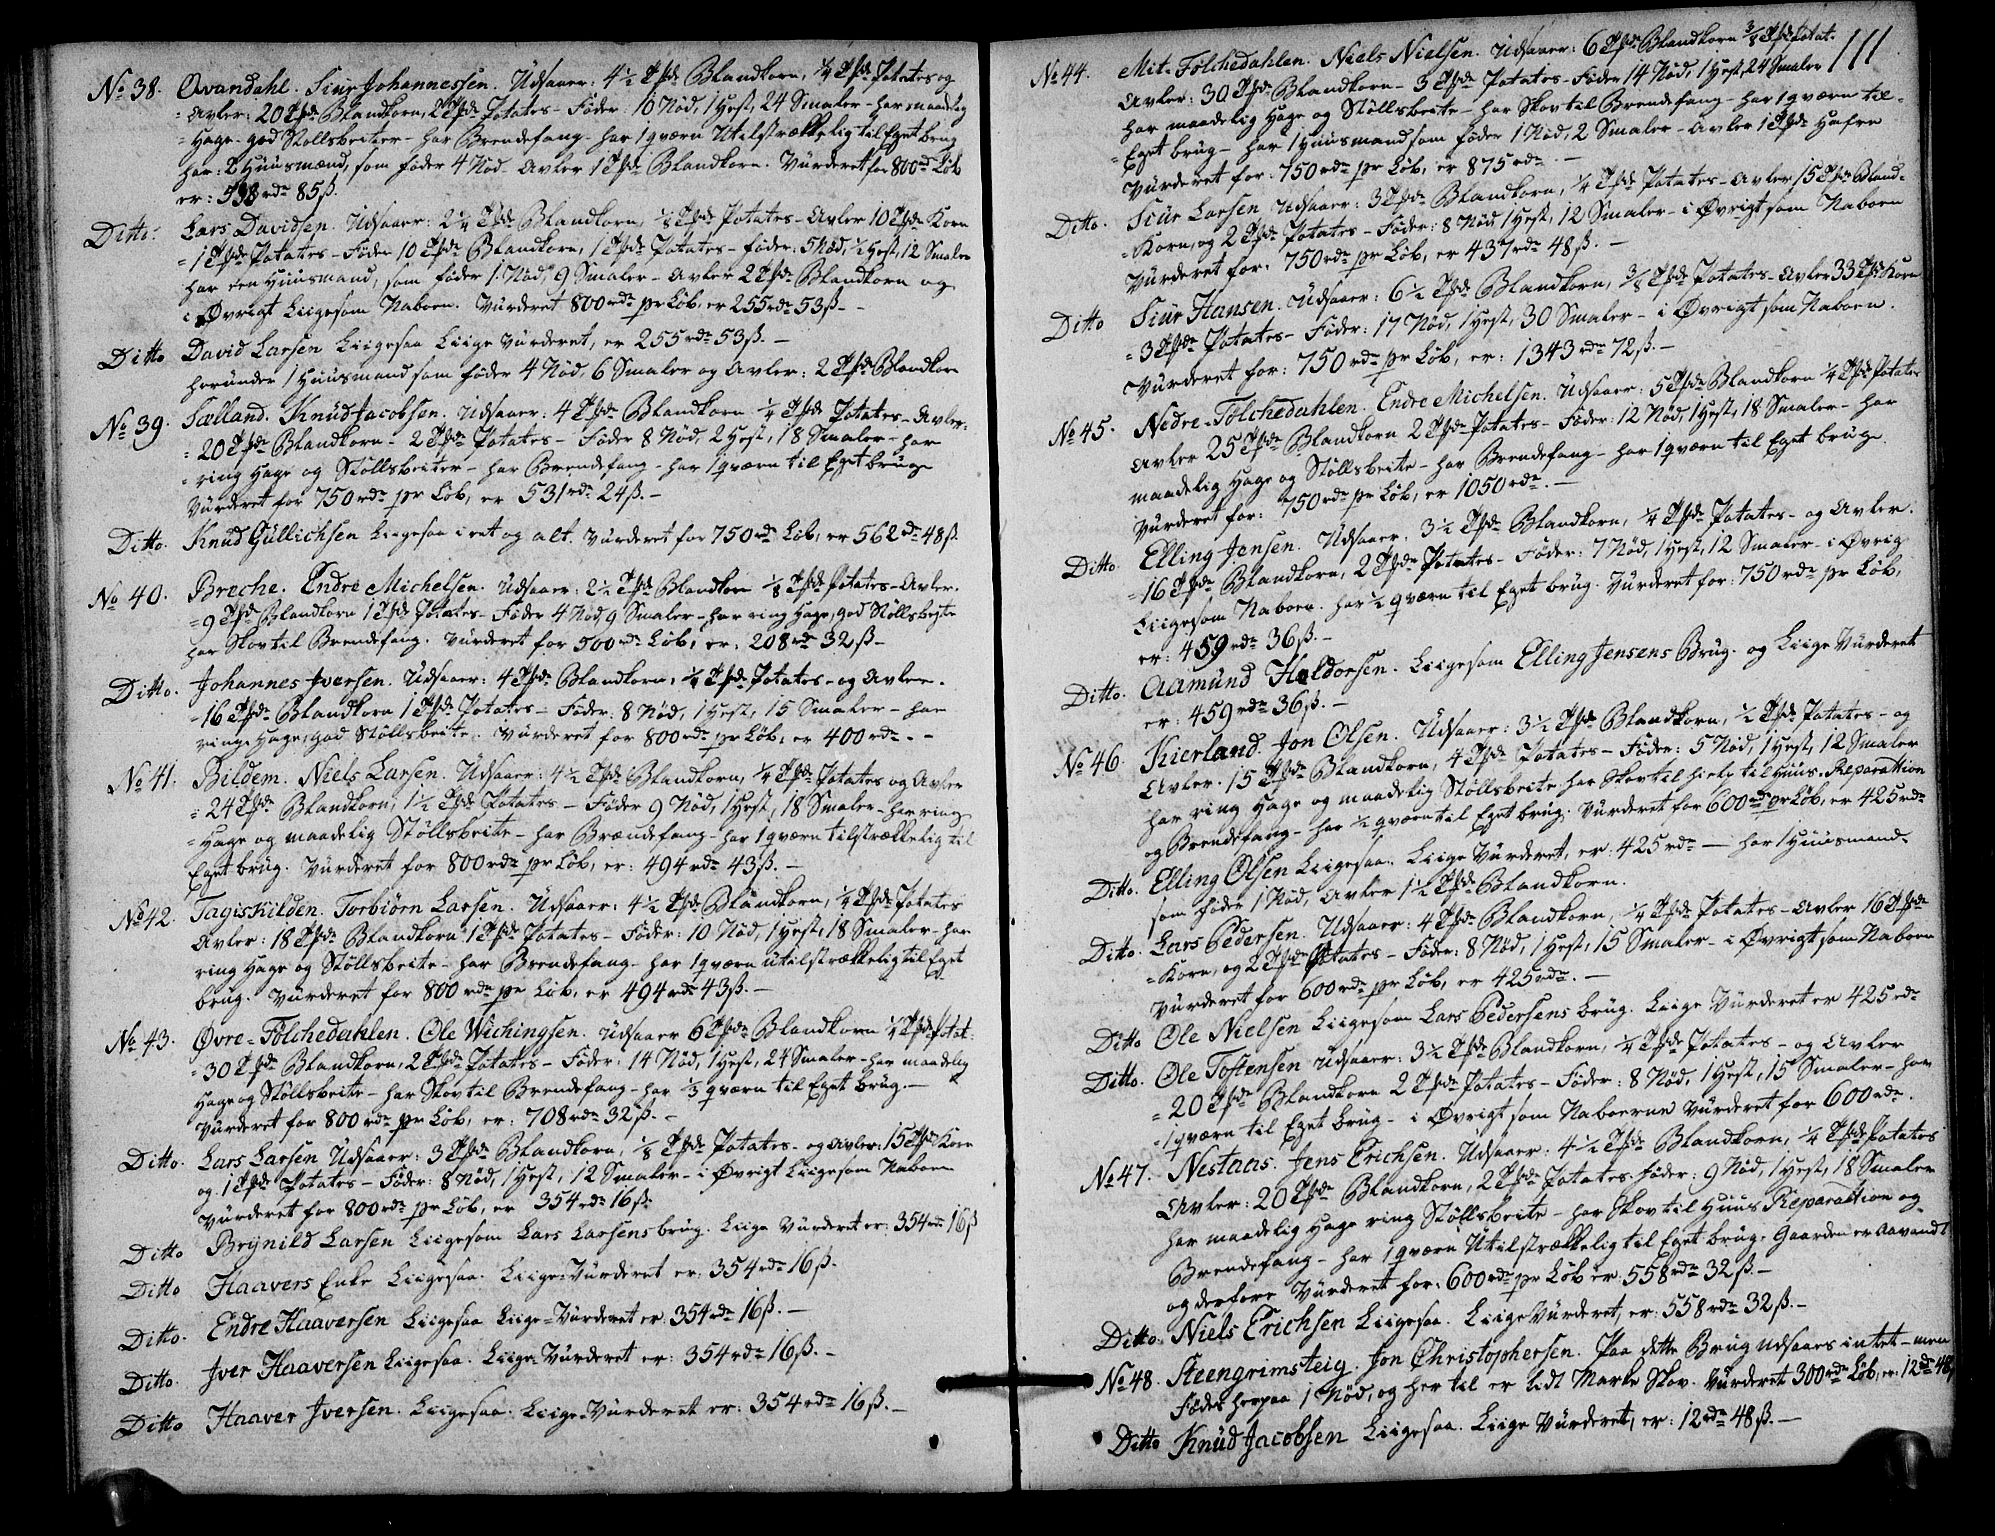 No 38. Qvandahl. Siur Johannessen. Udsaaer: 4 1/2 Tpde Blandkorn, 1/4 Tpde Potates og
Avler: 20 Tpde Blandkorn, 2 Tpde Potates - Föder 10 Nöd, 1 Hest, 24 Smaler - har maadelig
Hage, god Stöllsbeiter - har Brendefang - har 1 qværn Utilstrækkelig til Eget brug
har: 2 Huusmænd, som föder 4 Nöd - Avler 1 Tpde Blandkorn. Vurderet for 800 rd Löb
er: 598 rdr 85 ß.
Ditto. Lars Davidsen. Udsaaer: 2 1/4 Tpde Blandkorn, 1/8 Tpde Potates - Avler 10 Tpde Korn
1 Tpde Potates - Föder 10 Tpde Blandkorn, 1 Tpde Potates - föder: 5 Nöd, 1/2 Hest, 12 Smaler
har een Huusmand, som föder 1 Nöd, 9 Smaler - Avler 2 Tpde Blandkorn og
i Øvrigt Liigesom Naboen. Vurderet 800 rdr pr Löb, er 255 rdr 53 ß. -
Ditto David Larsen Liigesaa Liige Vurderet, er 255 rdr 53 ß. -
herunder 1 Huusmand som föder 4 Nöd, 6 Smaler og Avler: 2 Tpde Blandkorn
No 39. Sælland. Knud Jacobsen. Udsaaer: 4 Tpde Blandkorn 1/4 Tpde Potates - Avler:
20 Tpde Blandkorn - 2 Tpde Potates - Föder 8 Nöd, 2 Hest, 18 Smaler - har
ring Hage og Stöllsbeiter - har Brendefang - har 1 qværn til Eget bruge
Vurderet for 750 rdr pr Löb, er 531 rdr 24 ß. -
Ditto. Knud Gullichsen Liigesaa i et og alt. Vurderet for 750 rdr Löb, er 562 rdr 48 ß.
No 40. Breche. Endre Michelsen. Udsaaer: 2 1/2 Tpde Blandkorn 1/8 Tpde Potates - Avler.
9 Tpde Blandkorn 1 Tpde Potates - Föder 4 Nöd, 9 Smaler - har ring Hage, god Stöllsbeite
har Skov til Brendefang. Vurderet for 500 rdr Löb, er: 208 rdr 32 ß -
Ditto. Johannes Iversen. Udsaaer: 4 Tpde Blandkorn, 1/4 Tpde Potates - og Avler.
16 Tpde Blandkorn 1 Tpde Potates - Föder: 8 Nöd, 1 Hest, 15 Smaler - har
ring Hage, god Stöllsbeite. Vurderet for 800 rdr pr Löb, er 400 rdr. -
No 41. Bildem. Niels Larsen. Udsaaer: 4 1/2 Tpde Blandkorn, 1/4 Tpde Potates og Avler
24 Tpde Blandkorn, 1 1/2 Tpde Potates - Föder 9 Nöd, 1 Hest, 18 Smaler - har ring
Hage og maadelig Stöllsbeite - har Brændefang - har 1 qværn tilstrækkelig til
Eget brug. Vurderet for 800 rdr pr Löb, er: 494 rdr 43 ß. -
No 42. Tagiskilden. Torbiörn Larsen. Udsaaer: 4 1/2 Tpde Blandkorn, 1/4 Tpde Potates
Avler: 18 Tpde Blandkorn 1 Tpde Potates - Föder: 10 Nöd, 1 Hest, 18 Smaler - har
ring Hage og Stöllsbeite - har Brendefang - har 1 qværn utilstrækkelig til Eget
brug. Vurderet for 800 rdr pr Löb, er 494 rdr 43 ß. -
No 43. Øvre-Fölchedahlen. Ole Wichingsen. Udsaaer 6 Tpde Blandkorn 1/4 Tpde Potat:
30 Tpde Blandkorn, 2 Tpde Potates - Föder: 14 Nöd, 1 Hest, 24 Smaler - har maadelig
Hage og Stöllsbeite - har Skov til Brendefang - har 1/3 qværn til Eget brug. -
Vurderet for 800 rdr pr Löb, er: 708 rdr 32 ß. -
Ditto. Lars Larsen Udsaaer: 3 Tpde Blandkorn, 1/8 Tpde Potates - og Avler: 15 Tpde Korn
og 1 Tpde Potates - Föder: 8 Nöd, 1 Hest, 12 Smaler - i Øvrigt Liigesom Naboen
Vurderet for 800 rdr pr Löb, er 354 rdr 16 ß.
Ditto Brynild Larsen Liigesom Lars Larsens brug. Liige Vurderet er: 354 rdr 16 ß
Ditto Haavers Enke Liigesaa. Liige-Vurderet er: 354 rdr 16 ß.
Ditto. Endre Haaversen Liigesaa Liige-Vurderet er 354 rdr 16 ß. -
Ditto. Iver Haaversen Liigesaa. Liige-Vurderet er: 354 rdr 16 ß. -
Ditto Haaver Iversen. Liigesaa. Liige-Vurderet er: 354 rdr 16 ß. -
111
No 44. Mit-Fölchedahlen. Niels Nielsen. Udsaaer: 6 Tpde Blandkorn 3/8 Tpde Potat:
Avler: 30 Tpde Blandkorn - 3 Tpde Potates - Föder 14 Nöd, 1 Hest, 24 Smaler
har maadelig Hage og Stöllsbeite - har Skov til Brendefang - har 1 qværn til
Eget brug - har 1 Huusmand som föder 1 Nöd, 2 Smaler - Avler 1 Tpde Hafre
Vurderet for: 750 rdr pr Löb, er 875 rdr. -
Ditto. Siur Larsen Udsaaer: 3 Tpde Blandkorn, 1/4 Tpde Potates - Avler 15 Tpde Bland-
Korn, og 2 Tpde Potates - Föder: 8 Nöd 1 Hest, 12 Smaler - i Øvrigt som Naboen
Vurderet for: 750 rdr pr Löb, er 437 rdr 48 ß. -
Ditto Siur Hansen. Udsaaer: 6 1/2 Tpde Blandkorn, 3/8 Tpde Potates - Avler 33 Tpde Korn
3 Tpde Potates - Föder: 17 Nöd, 1 Hest, 30 Smaler - i Øvrigt som Naboen.
Vurderet for: 750 rdr pr Löb, er: 1343 rdr 72 ß. -
No 45. Nedre-Fölchedahlen. Endre Michelsen. Udsaaer: 5 Tpde Blandkorn 1/4 Tpde Potates
Avler 25 Tpde Blandkorn 2 Tpde Potates - Föder: 12 Nöd, 1 Hest, 18 Smaler - har
maadelig Hage og Stöllsbeite - har Brendefang - har 1 qværn til Eget bruge
Vurderet for: 750 rdr pr Löb, er 1050 rdr. -
Ditto. Elling Jensen. Udsaaer: 3 1/2 Tpde Blandkorn, 1/4 Tpde Potates - og Avler.
16 Tpde Blandkorn, 2 Tpde Potates - Föder: 7 Nöd, 1 Hest, 12 Smaler - i Øvrig
Liigesom Naboen. har 1/2 qværn til Eget brug. Vurderet for: 750 rdr pr Löb,
er: 459 rdr 36 ß. -
Ditto. Aamund Haldorsen. Liigesom Elling Jensens Brug - og Liige Vurderet
er: 459 rdr 36 ß. -
No 46. Kierland. Jon Olsen. Udsaaer: 3 1/2 Tpde Blandkorn, 1/2 Tpde Potates - og
Avler: 15 Tpde Blandkorn, 4 Tpde Potates - Föder: 5 Nöd, 1 Hest, 12 Smaler
har ring Hage og maadelig Stöllsbeite har Skov til hielp til Huus-Reparattion
og Brendefang - har 1/2 qværn til Eget brug. Vurderet for 600 rdr pr Löb, er 425 rdr
Ditto. Elling Olsen Liigesaa. Liige Vurderet, er: 425 rdr - har 1 Huusmand
som föder 1 Nöd, Avler 1 1/2 Tpde Blandkorn.
Ditto. Lars Pedersen. Udsaaer: 4 Tpde Blandkorn, 1/4 Tpde Potates - Avler 16 Tpde
Korn, og 2 Tpde Potates - Föder: 8 Nöd, 1 Hest, 15 Smaler - i Øvrigt som Naboen
Vurderet for 600 rdr pr Löb, er 425 rdr. -
Ditto Ole Nielsen Liigesom Lars Pedersens brug. Liige Vurderet er 425 rdr
Ditto. Ole Tostensen Udsaaer: 3 1/2 Tpde Blandkorn, 1/4 Tpde Potates - og Avler
20 Tpde Blandkorn 2 Tpde Potates - Föder: 8 Nöd, 1 Hest, 15 Smaler - har
1 qværn til Eget brug - i Øvrigt som Naboerne Vurderet for 600 rdr.
No 47. Nestaas. Jens Erichsen. Udsaaer: 4 1/2 Tpde Blandkorn, 1/4 Tpde Potates
Avler: 20 Tpde Blandkorn, 2 Tpde Potates. föder: 9 Nöd, 1 Hest, 18 Smaler
har maadelig Hage ring Stöllsbeite - har Skov til Huus Reparattion og
Brendefang - har 1 qværn Utilstrækkelig til Eget brug. Gaarden er Aavandt
og derfore Vurderet for: 600 rdr pr Löb er: 558 rdr 32 ß. -
Ditto. Niels Erichsen Liigesaa. Liige Vurderet, er: 558 rdr 32 ß. -
No 48. Steengrimsteig. Jon Christophersen. Paa dette Brug udsaaes intet - men
Födes herpaa 1 Nöd, og her til er lidt Marke Skov. Vurderet 300 rdr Löb, er: 12 rd 48 ß
Ditto Knud Jacobsen Liigesaa. Liige Vurderet, er: 12 rdr 48 ß. -